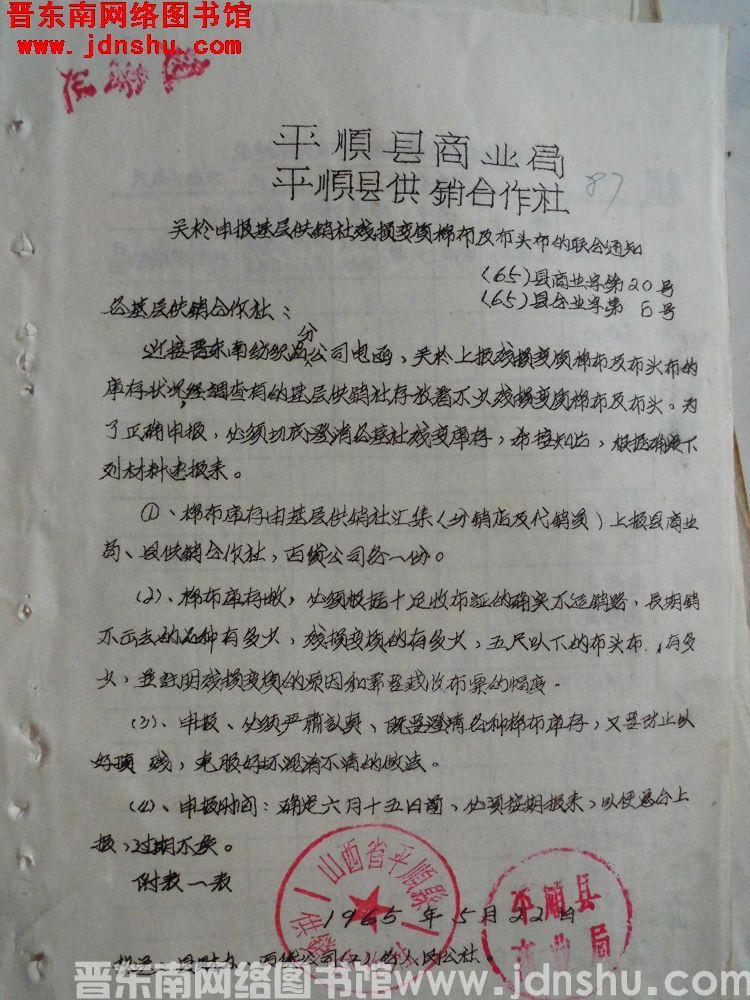 晋东南网络图书馆
www.jdnshu.com
平順县商业局
平順县供銷合作社
87
关於申报基层供销社残损变质棉布及布头布的联合通知
(65)县商业字第20号
(65)县合业字第6号
各基层供销合作社：
近接晋东南纺织品分公司电函，关於上报残损变质棉布及布头布的
库存状况，经调查有的基层供销社存放着不少残损变质棉布及布头。为
了正确申报，必须切底澄清各基社残变库存，希接知后，根据确实下
列材料速报来。
①、棉布库存由基层供销社汇集(分销店及代销员)上报县商业
局、县供销合作社，百货公司各一份。
(2)、棉布库存数，必须根据十足收布证的确实不适销路，长期销
不出去的品种有多少，残损变质的有多少，五尺以下的布头布，有多
少，并註明残损变质的原因和需要减收布票的幅度。
(3)、申报、必须严肃认真、既要澄清各种棉布库存，又要防止以
好顶残，克服好坏混淆不清的做法。
(4)、申报时间：确定六月十五日前，必须按期报来，以便汇合上
报，过期不候。
附表一表
1965年5月22日
山西省平順縣供銷
平順县商业局
抄送：百货公司(2)份人民公社。
晋东南网络图书馆 www.jdnshu.com